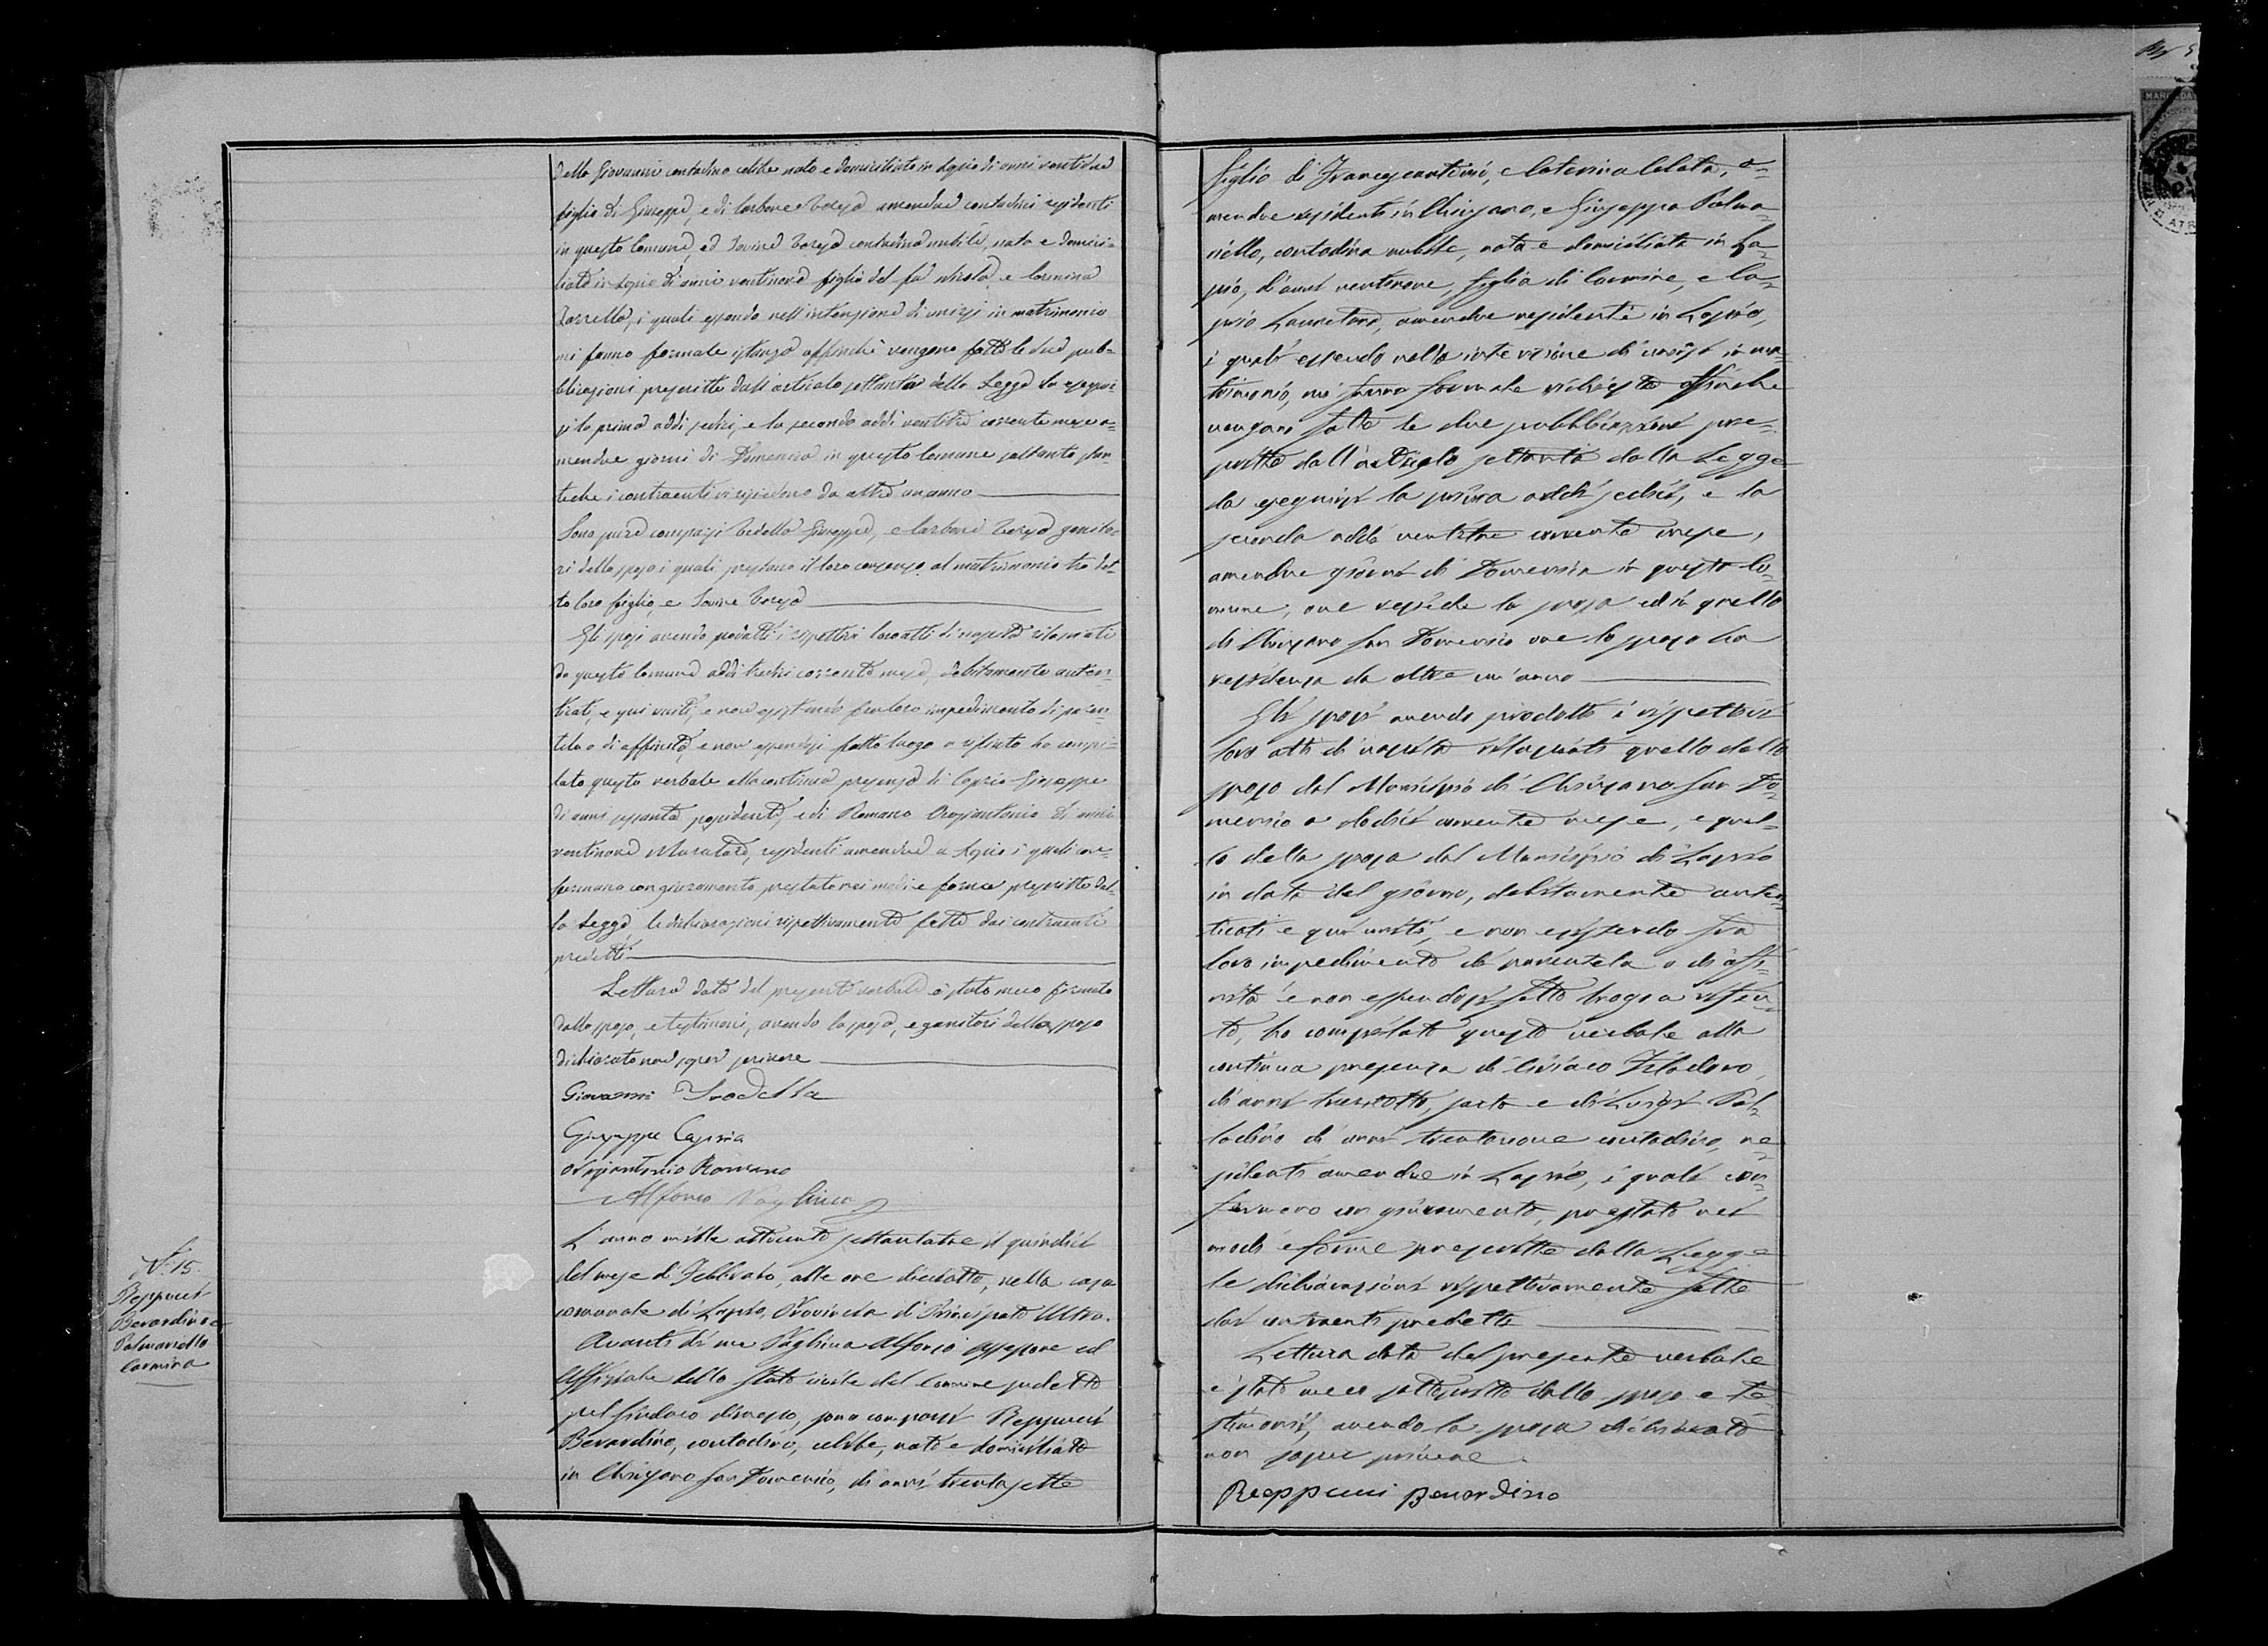 della Giovanni contadino celibe nato e domiciliato in Lapio di anni ventidue
figlio di Giuseppe, e di Carbone Teresa amendue contadini residenti
in questo Comune, ed Iovine Teresa contadina nubile, nata e domici-
liata in Lapio di anni ventinove figlia del fu Nicola, e Carmina
i quali essendo nell'intenzione di unirsi in matrimonio
mi fanno formale istanza affinchè vengano fatte le due pub-
blicazioni prescritte dall'articolo settanta della Legge da esegui-
si la prima addì sedici, e la seconda addì ventitre corrente mese a-
mendue giorni di Domenica in questo Comune soltanto stan-
teche i contraenti vi risiedono da oltre un anno
Sono pure comparsi Giuseppe, e Carbone Teresa genito-
ri dello sposo i quali prestano il loro consenso al matrimonio tra det-
to loro figlio, e Iovine Teresa
Gli sposi avendo prodotti i rispettivi loro atti di nascita rilasciati
da questo Comune addì tredici corrente mese, debitamente auten-
ticati, e qui uniti, e non esistendo fra loro impedimento di paren-
tela o di affinità, e non essendosi fatto luogo a rifiuto ho compi-
lato questo verbale alla continua presenza di Caprio Giuseppe
di anni sessanta possidente, e di Romano Orsiantonio di anni
ventinove Muratore, residenti amendue a Lapio i quali con-
fermano con giuramento prestato nei modi e forme prescritte dal-
la Legge le dichiarazioni rispettivamente fatte dai contraenti
predetti
Lettura data del presente verbale è stato meco firmato
dallo sposo, e testimoni, avendo la sposa, e genitori dello sposo
dichiarato non saper scrivere
Giovanni
Giuseppe Caprio
Orsiantonio Romano
Alfonso Vaglivica
N. 15.
Reppucci
Berardino e
Palmariello
Carmina
L'anno mille ottocento settantatre il quindici
del mese di Febbraio, alle ore dieciotto, nella casa
comunale di Lapio, Provincia di Principato Ultra.
Avanti di me Vaglivica Alfonso Assessore ed
Uffiziale dello Stato civile del Comune sudetto
pel Sindaco dimesso, sono comparsi Reppucci
Berardino, contadino, celibe, nato e domiciliato
in Chiusano San Domenico, di anni trentasette
figlio di Francescantonio, e Caterina Celata, a-
mendue residenti in Chiusano, e Giuseppa Palma-
riello, contadina nubile, nata e domiciliata in La-
pio, d'anni ventinove, figlia di Carmine, e Ca-
prio Lauretana, amendue residenti in Lapio,
i quali essendo nella intenzione di unirsi in ma-
trimonio, mi fanno formale richiesta affinche
vengano fatte le due pubblicazioni pre-
scritte dall'articolo settanta dalla Legge
da eseguirsi la prima addì sedici, e la
seconda addì ventitre corrente mese,
amendue giorni di Domenica in questo Co-
mune, ove risiede la sposa ed in quello
di Chiusano San Domenico ove lo sposo ha
residenza da oltre un'anno
Gli sposi avendo prodotto i rispettivi
loro atti di nascita rilasciati quello dello
sposo dal Municipio di Chiusano San Do-
menico a dodici corrente mese, e quel-
lo della sposa dal Municipio di Lapio
in data del giorno, debitamente auten-
ticati e qui uniti, e non esistendo fra
loro impedimento di parentela o di affi-
nità e non essendosi fatto luogo a rifiu-
to, ho compilato questo verbale alla
continua presenza di Ciriaco Filadoro,
di anni trentotto, sarto e di Luigi Pal-
ladino di anni trentanove contadino, re-
sidenti amendue in Lapio, i quali con-
fermano con giuramento, prestato nei
modi e forme prescritte dalla Legge
le dichiarazioni rispettivamente fatte
dai contraenti predetti
Lettura data del presente verbale
è stato meco sottoscritto dallo sposo e te-
stimonii, avendo la sposa dichiarato
non saper scrivere.
Reppucci Berardino